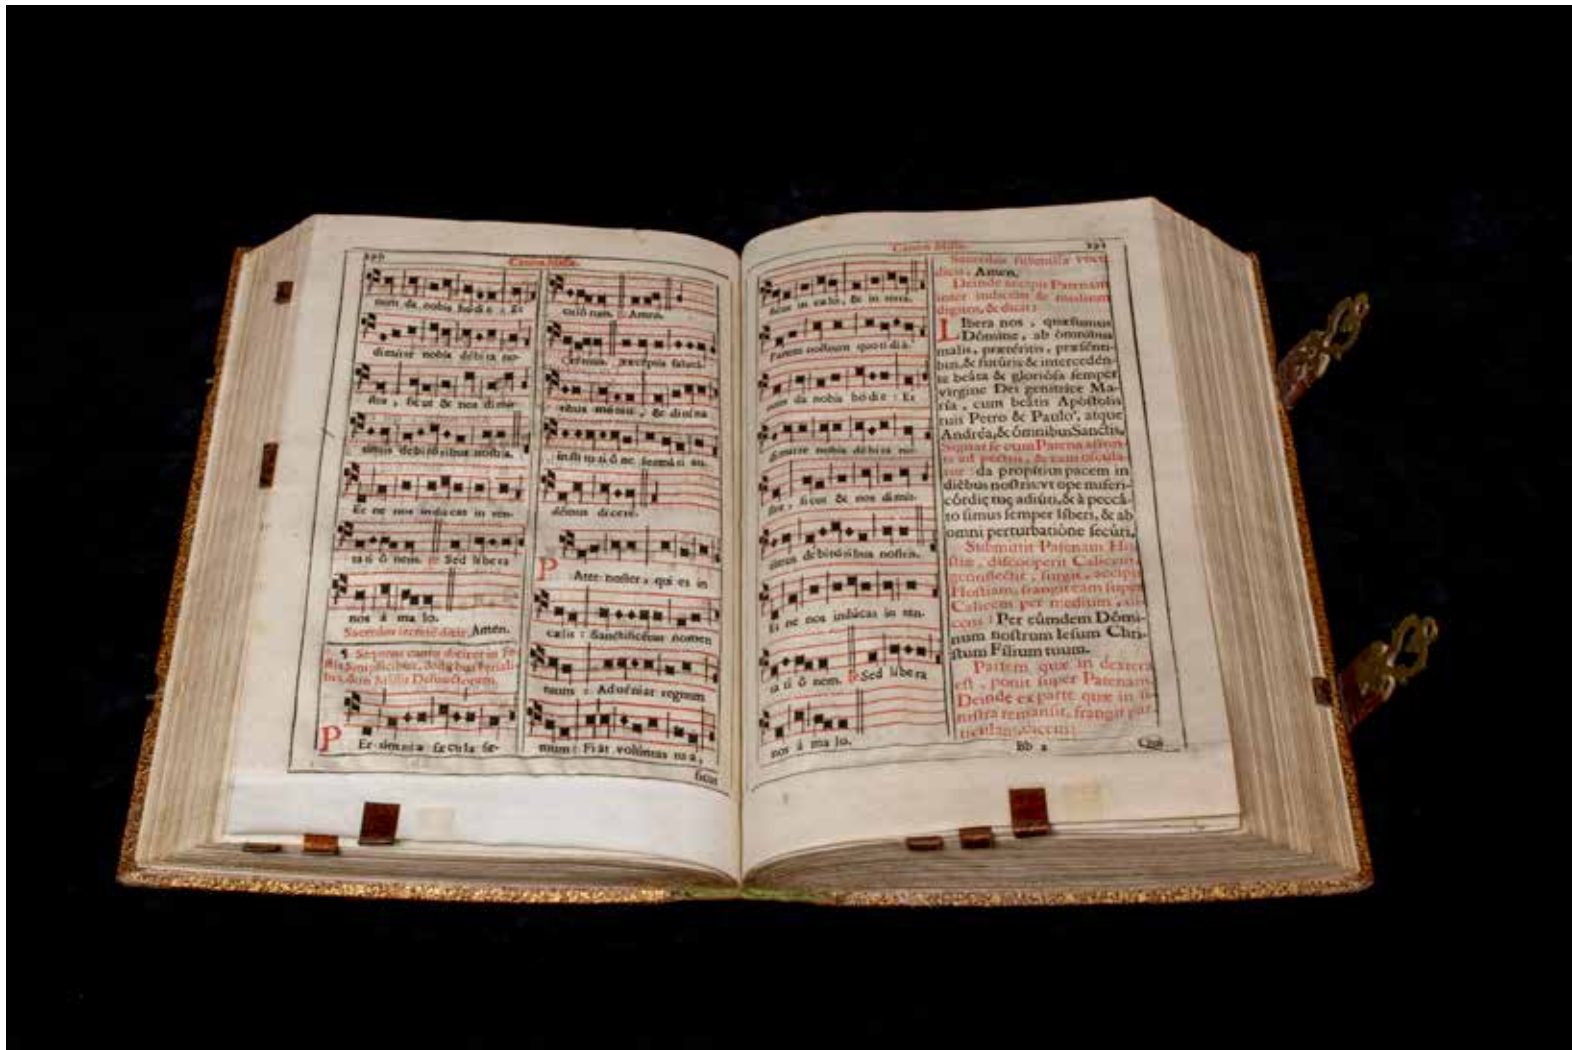 290
Canon Missæ.
num da nobis hódie : Et
dimitte nobis débita no-
stra, sicut & nos dimit-
timus debitóribus nostris.
Et ne nos indúcas in ten-
ta ti ó nem. ℟ Sed líbera
nos à ma lo.
Sacerdos secretè dicit, Amen.
¶ Sequens cantus dicitur in Fe-
stis Simplicibus, & diebus Ferialibus, & in Missis Defunctorum.
PEr ómnia sǽcula sæ-
culórum. ℟ Amen.
Orémus. Præcéptis salutá-
ribus móniti, & divína
insti tu ti ó ne formáti au-
démus dícere.
PAter noster, qui es in
cælis : Sanctificétur nomen
tuum : Advéniat regnum
tuum : Fiat volúntas tua,
sicut
Canon Missæ.
291
sicut in cælo, & in terra.
Panem nostrum quoti diá-
num da nobis hódie : Et
dimitte nobis débita no-
stra, sicut & nos dimit-
timus debitóribus nostris.
Et ne nos indúcas in ten-
ta ti ó nem. ℟ Sed líbera
nos à ma lo.
Sacerdos submissa voce
dicit, Amen.
Deinde accipit Patenam
inter indicem & medium
digitos, & dicit:
LIbera nos, quæsumus
Dómine, ab ómnibus
malis, prætéritis, præsénti-
bus, & futúris: & intercedén-
te beáta & gloriósa semper
vírgine Dei genitríce Ma-
ría, cum beátis Apóstolis
tuis Petro & Paulo, atque
Andréa, & ómnibus Sanctis,
Signat se cum Patena a fron-
te ad pectus, & eam oscula-
tur : da propítius pacem in
diébus nostris: vt ope miseri-
córdię tuę adiúti, & à peccá-
to simus semper líberi, & ab
omni perturbatióne secúri.
Submittit Patenam Ho-
stiæ, discooperit Calicem,
genuflectit, surgit, accipit
Hostiam, frangit eam super
Calicem per medium, di-
cens : Per eúmdem Dómi-
num nostrum Iesum Chri-
stum Fílium tuum.
Partem quæ in dextera
est, ponit super Patenam.
Deinde ex parte quæ in si-
nistra remansit, frangit par-
ticulam, dicens:
Bb 2
Qui